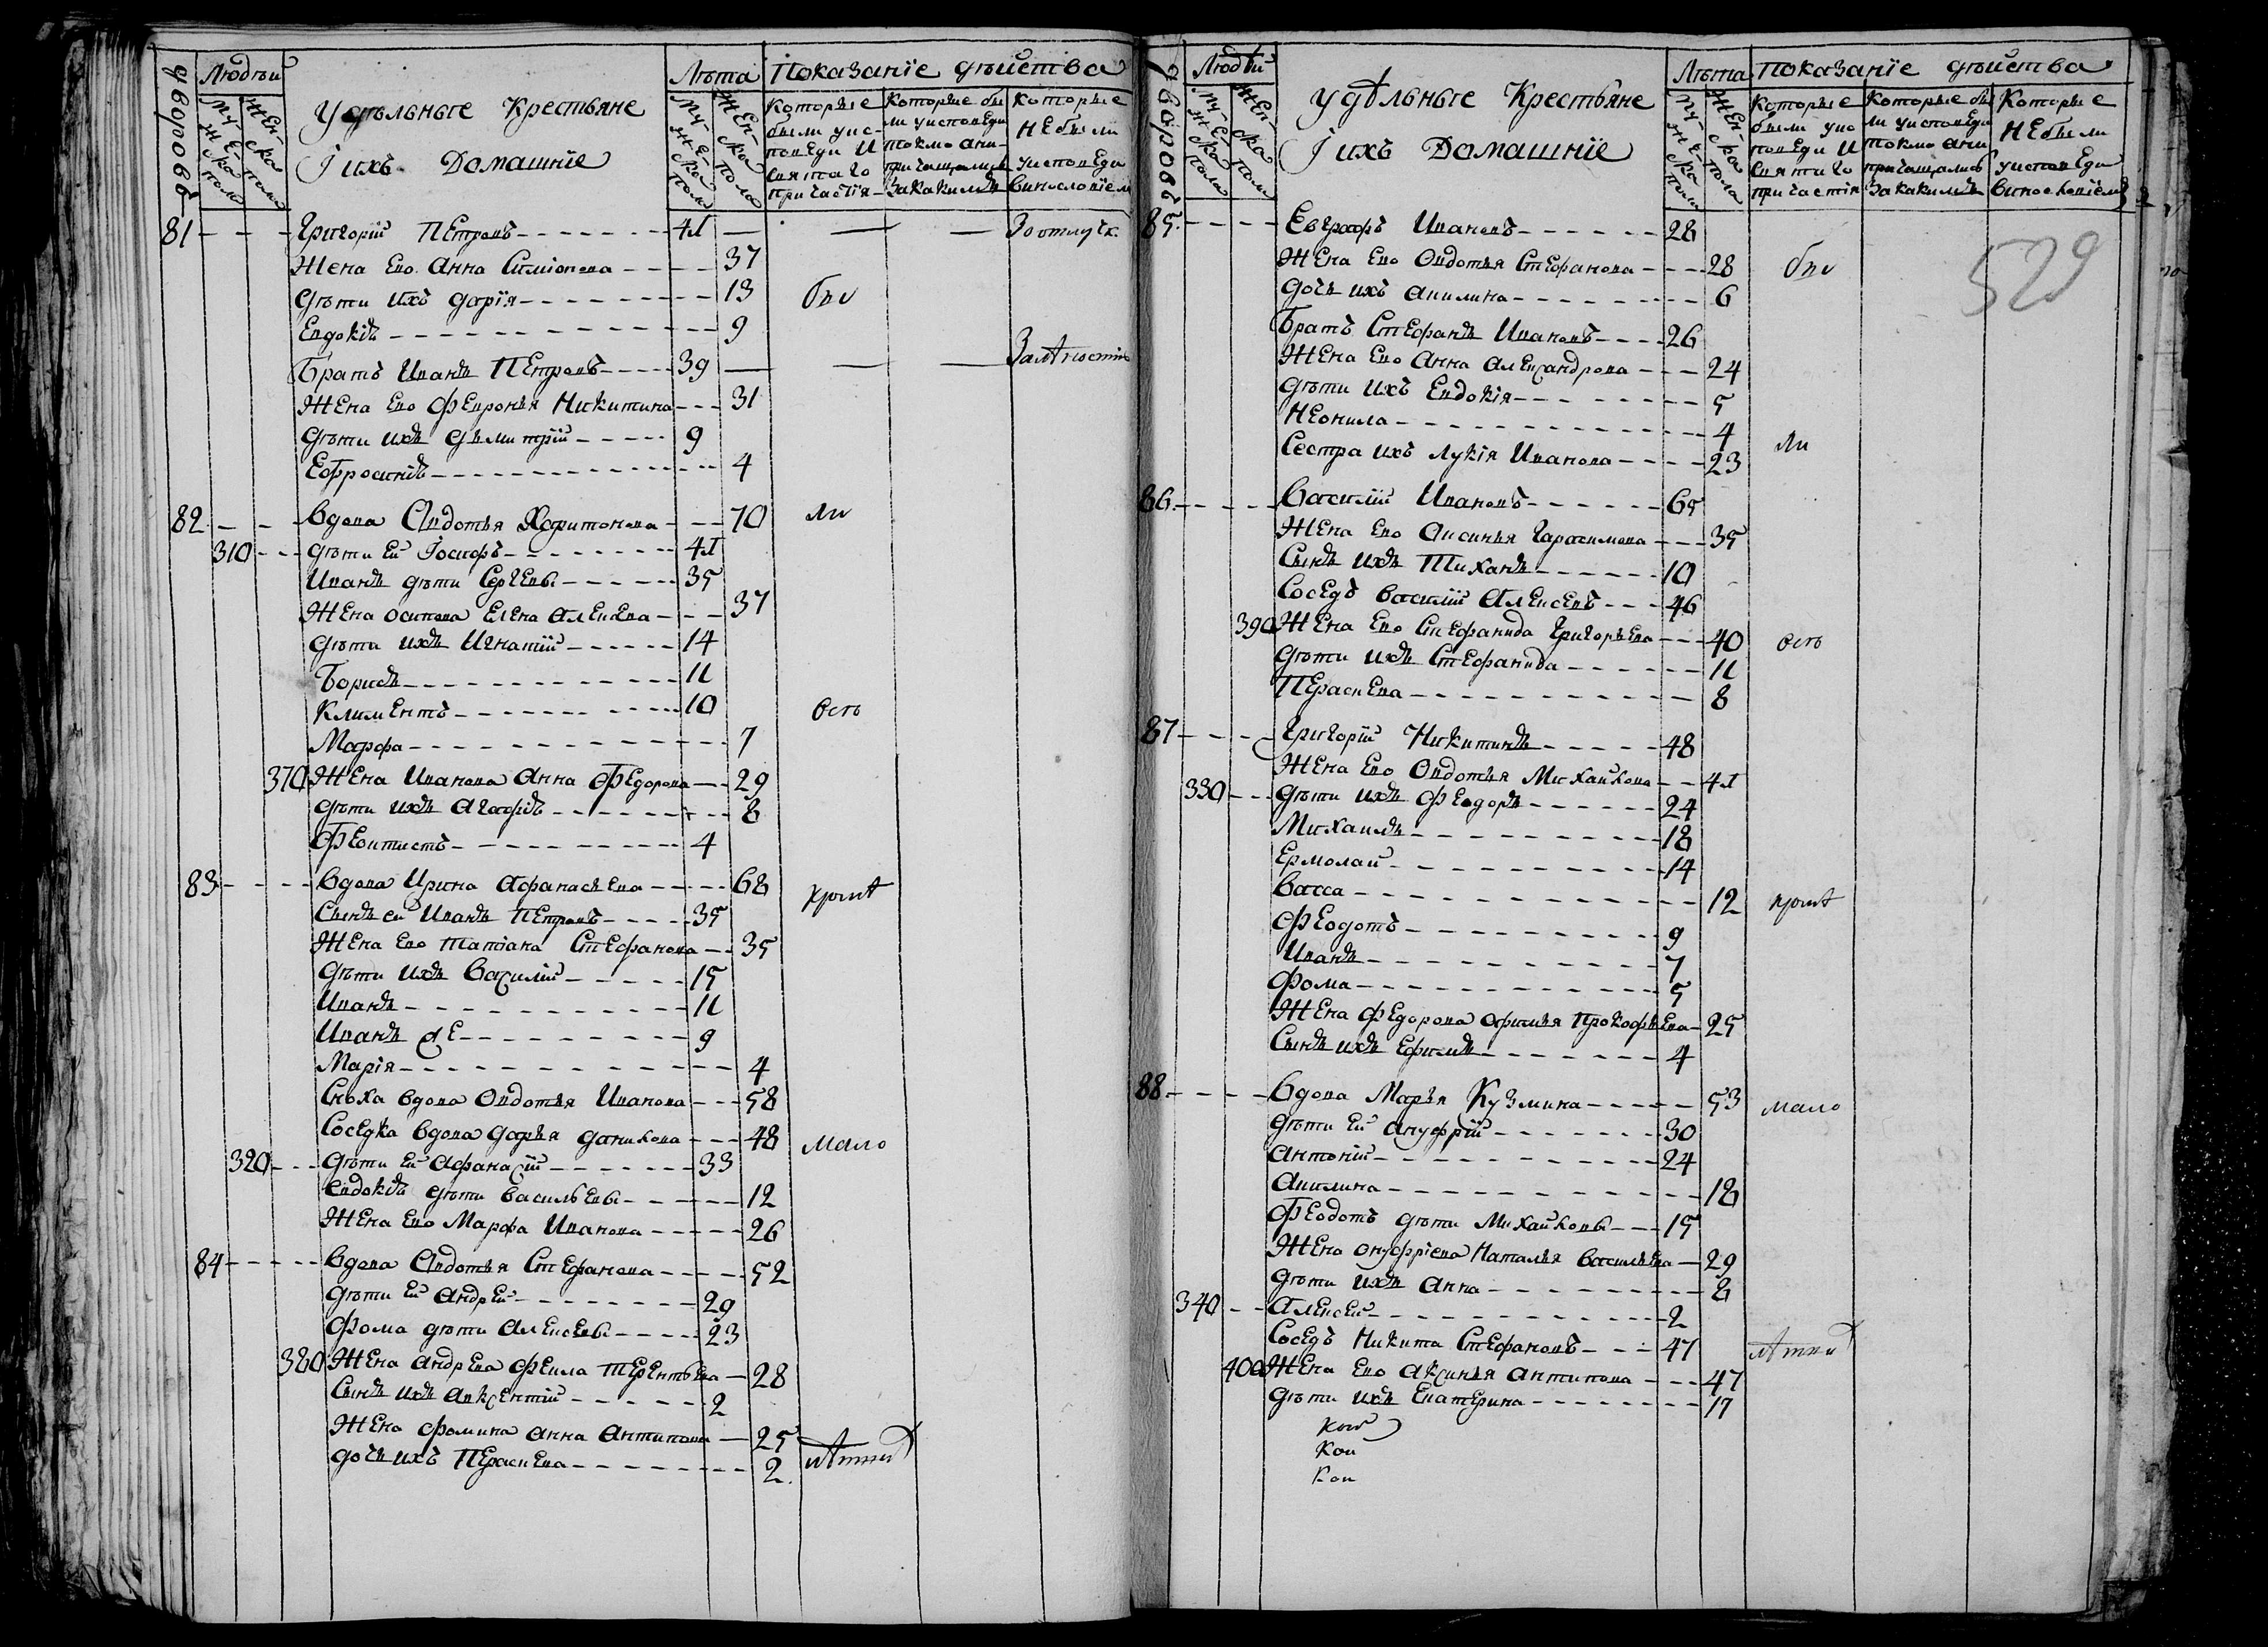 дворовъ
Людѣй
муже ска пола
жен ска пола
Удѣльные Крестьяне
I ихъ Домашнïе
Лѣта
муже ска пола
жен ска пола
Показанïе дѣйства
Которые были у исповѣди и святаго причастïя
Которые были у исповѣди токмо а не причащались
Которые не были у исповѣди
81 - - - Григорïй Петровъ - - - 41 — — — За отлуч.
Жена Ево Анна Симïонова - - - 37
дѣти ихъ дарïя - - - 13 бы
Евдокïѣ - - - 9
Братъ Иванъ Петровъ - - - 39 — — —
Жена Ево Февронья Никитина - - - 31
дѣти ихъ дьмитрïй - - - 9
Ефросинïѣ - - - 4
82 - - - Вдова Авдотья Харитонова - - - 70 ли
310 - - дѣти Ей Iосифъ - - - 41
Иванъ дѣти Сергѣевы - - - 35
Жена Осипова Елена Алексѣева - - - 37
дѣти ихъ Игнатïй - - - 14
Борисъ - - - 11
Климентъ - - - 10 всѣ
Марфа - - - 7
370 Жена Иванова Анна Федорова - - 29
дѣти ихъ Агафïѣ - - - 8
Феоктистъ - - - 4
83 - - - Вдова Ирина Афанасьева - - - 68 кромѣ
Сынъ ей Иванъ Петровъ - - - 35
Жена Ево Татïана Стефанова - - 35
дѣти ихъ Василïй - - - 15
Иванъ - - - 11
Иванъ дЕ - - - 9
Марïя - - - 4
Сноха вдова Овдотья Иванова - - - 58
Соседка вдова дарья данилова - - - 48 мало
320 - - дѣти Ей Афанасïй - - - 33
евдокïѣ дѣти васильевы - - - 12
Жена Ево Марфа Иванова - - - 26
84 - - - Вдова Авдотья Стефанова - - - 52
дѣти Ей Андрей - - - 29
Фома дѣти Алексѣевы - - - 23
380 Жена Андреева Фекла Терентьева - 28
Сынъ ихъ Авксентïй - - - 2
Жена Фомина Анна Антипова - 25 лѣтних
дочь ихъ Пераскева - - - 2
дворовъ
Людѣй
муже ска пола
жен ска пола
Удѣльные Крестьяне
I ихъ Домашнïе
Лѣта
муже ска пола
жен ска пола
Показанïе дѣйства
Которые были у исповѣди и святаго причастïя
Которые были у исповѣди токмо а не причащались
Которые не были у исповѣди
529
85 - - - Евграфъ Ивановъ - - - 28
Жена Ево Овдотья Стефанова - - - 28 бы
дочь ихъ Акилина - - - 6
Братъ Стефанъ Ивановъ - - - 26
Жена Ево Анна Александрова - - - 24
дѣти ихъ Евдокïя - - - 5
Неонила - - - 4 ли
Сестра ихъ Лукïя Иванова - - - 23
86 - - - Василïй Ивановъ - - - 65
Жена Ево Аксинья Гарасимова - - - 35
Сынъ ихъ Тиханъ - - - 10
Соседъ василïй Алексѣевъ - - - 46
390 Жена Ево Стефанида Григорьева - - - 40 всѣ
дѣти ихъ Стефанида - - - 11
Пераскева - - - 8
87 - - - Григорïй Никитинъ - - - 48
Жена Ево Овдотья Михайлова - - 41
330 - - дѣти ихъ Феодоръ - - - 24
Михаилъ - - - 18
Ермолай - - - 14
Васса - - - 12 кромѣ
Феодотъ - - - 9
Иванъ - - - 7
Фома - - - 5
Жена Федорова Афимья Прокофьева - 25
Сынъ ихъ Ефимъ - - - 4
88 - - - Вдова Марья Кузмина - - - 53 мало
дѣти Ей Ануфрïй - - - 30
Антонïй - - - 24
Акилина - - - 18
Феодотъ дѣти Михайловы - - - 15
Жена онуфрïева Наталья васильева - 29
дѣти ихъ Анна - - - 8
340 - - Алексей - - - 2
Соседъ Никита Стефановъ - - - 47 лѣтних
400 Жена Ево Аксинья Антипова - - - 47
дѣти ихъ Екатерина - - - 17